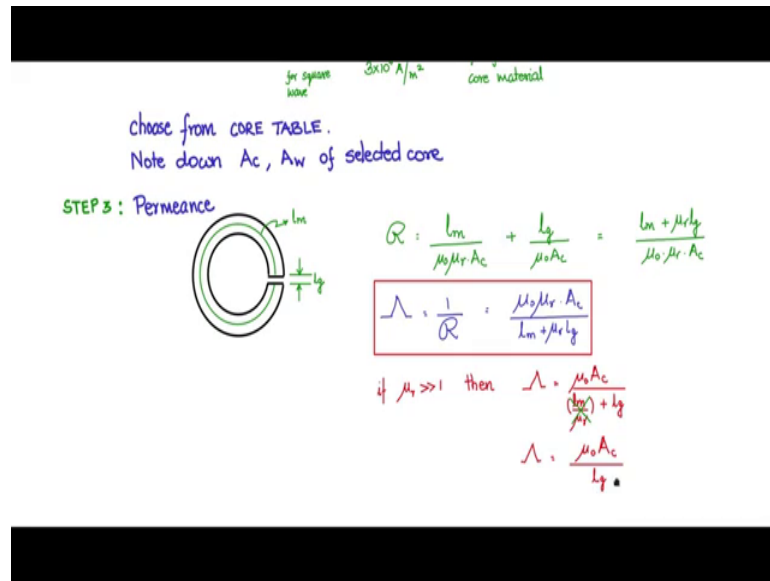 for square 3×10⁶ A/m² core material
wave
choose from CORE TABLE.
Note down Ac, Aw of selected core
STEP 3 : Permeance
lm
lg
R = lm/(μ₀μr Ac) + lg/(μ₀Ac) = (lm + μr lg)/(μ₀·μr·Ac)
Λ = 1/R = μ₀μr·Ac/(lm + μr lg)
if μr >>1 then Λ = μ₀Ac/((lm/μr) + lg)
Λ = μ₀Ac/lg